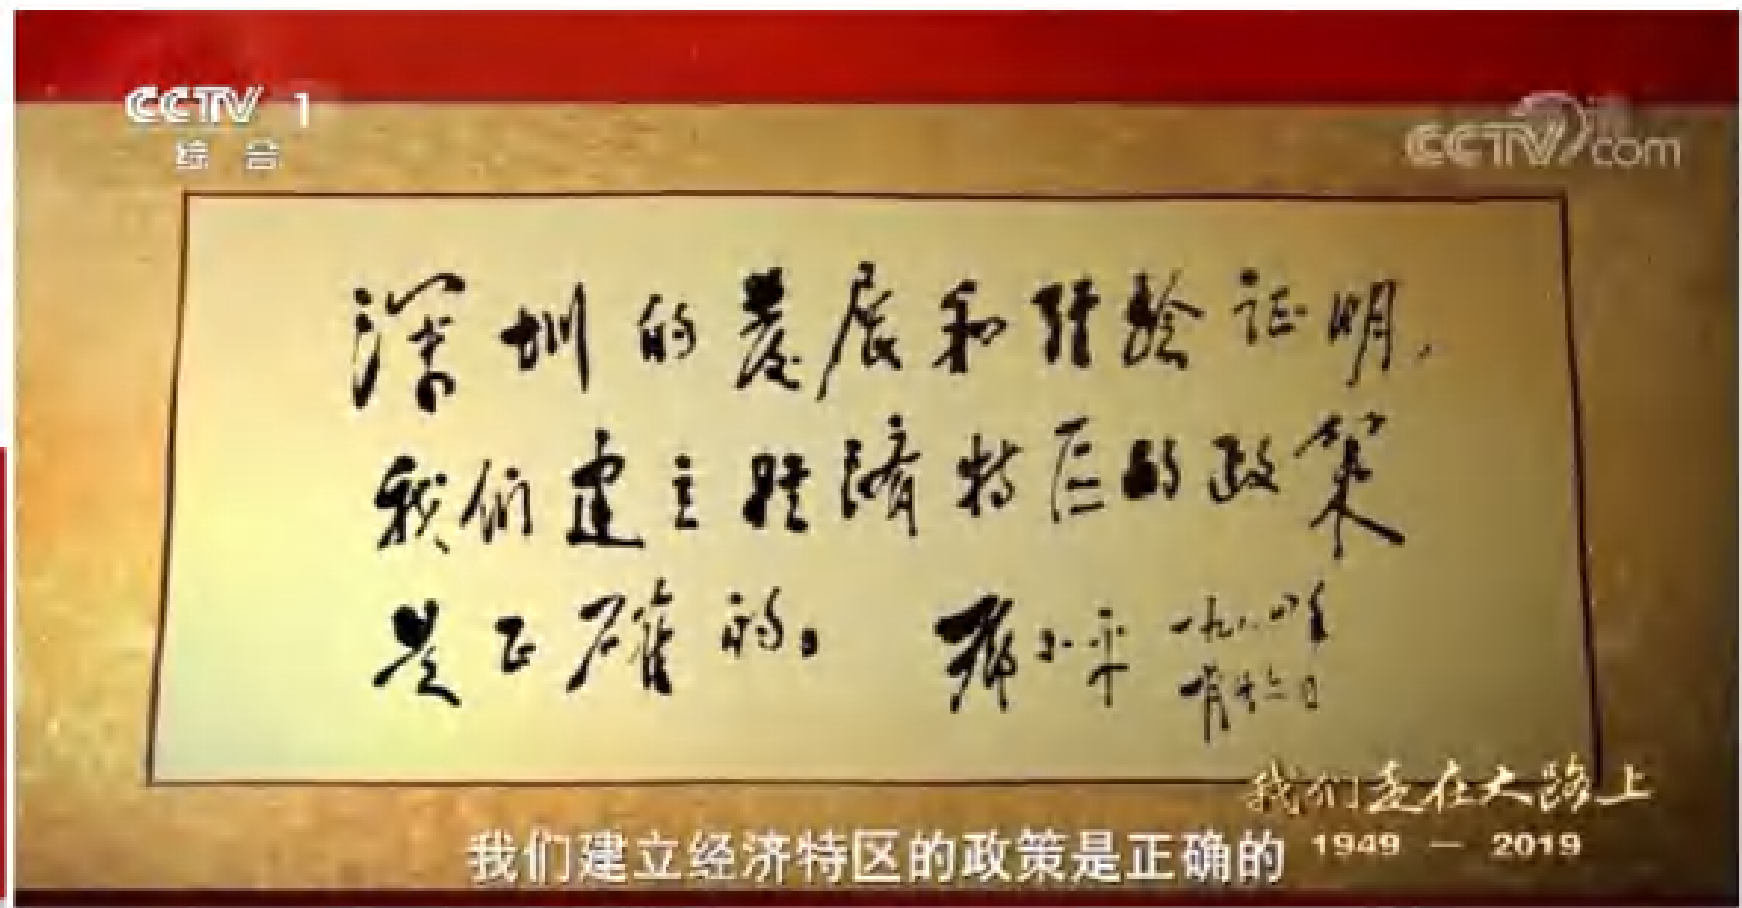 CCTV 1
综合
CCTV.com
深圳的发展和经验证明，
我们建立经济特区的政策
是正确的。 邓小平 一九八四年
一月廿六日
我们走在大路上
1949 — 2019
我们建立经济特区的政策是正确的